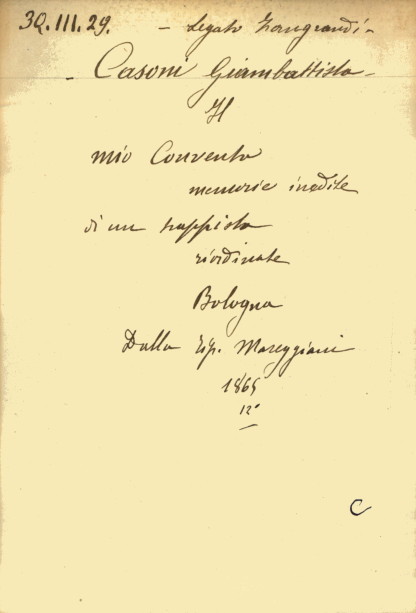 3Q.III.29. - Legato Zangrandi -
- Casoni Giambattista -
Il
mio Convento
memorie inedite
di un trappista
riordinate
Bologna
Dalla Tip. Mareggiani
1865
12°
C